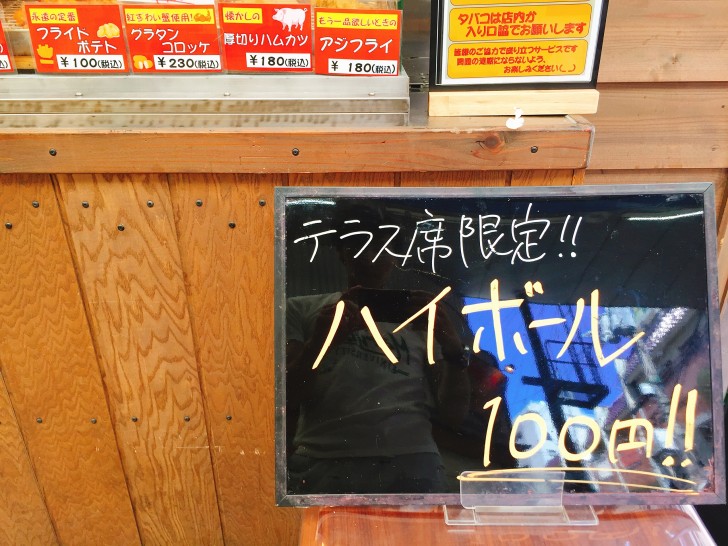 永遠の定番
フライド
ポテト
¥100(税込)
紅ずわい蟹使用!
グラタン
コロッケ
¥230(税込)
懐かしの
厚切りハムカツ
¥180(税込)
もう一品欲しいときの
アジフライ
¥180(税込)
タバコは店内か
入り口脇でお願いします
皆様のご協力で成り立つサービスです
周囲の迷惑にならないよう、
お楽しみください(_ _)
テラス席限定!!
ハイボール
100円!!